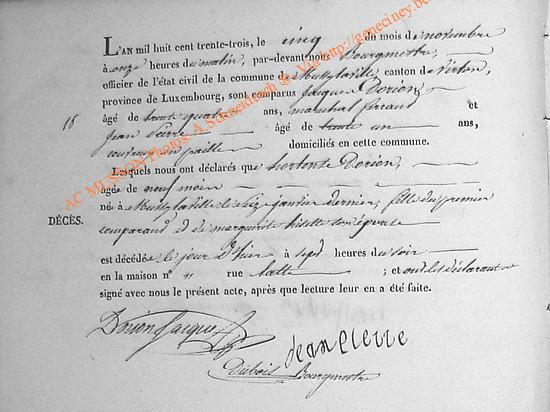 L'AN mil huit cent trente-trois, le cinq du mois de novembre
à onze heures du matin, par-devant nous Bourgmestre,
officier de l'état civil de la commune de Mussy-la-ville, canton de Virton,
province de Luxembourg, sont comparus Jacques Dorion,
18 âgé de trente quatre ans, maréchal ferrand et
Jean Pierre âgé de trente un ans,
couvreur en paille domiciliés en cette commune.
Lesquels nous ont déclarés que hortonte Dorion,
agée de neuf mois
né à Mussy-la-ville le seize janvier dernier, fille du premier
DÉCÈS.
comparand et de marguerite son épouse
est décédée le jour d'hier à sept heures du soir
en la maison n° " rue latte ; et ont les déclarants
signé avec nous le présent acte, après que lecture leur en a été faite.
Dorion Jacques
jean pierre
Dubois Bourgmestre
AC MUSSON Photos: A. Schneidesch ® - Via http://geneciney.be